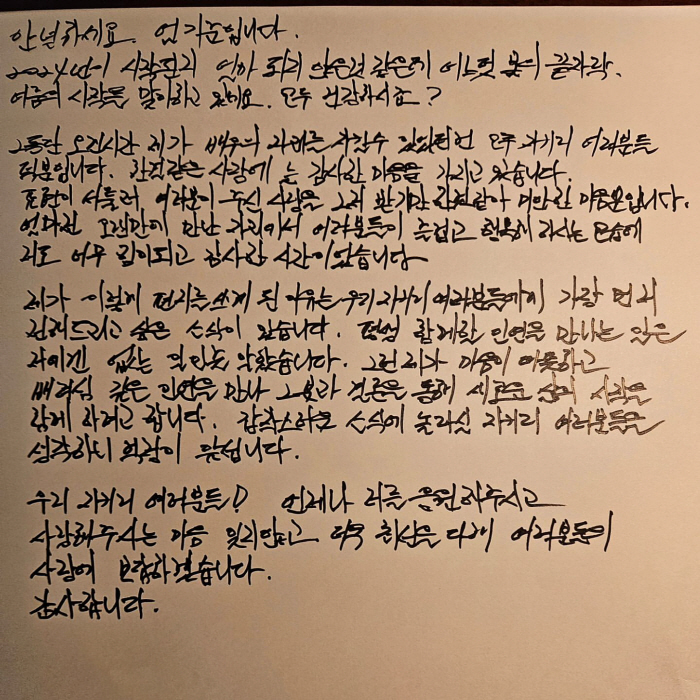 안녕하세요. 엄기준입니다.
2024년이 시작된지 얼마 되지 않은것 같은데 어느덧 봄의 끝자락.
여름의 시작을 맞이하고 있네요. 모두 건강하시죠?
그동안 오랜시간 제가 배우의 자리를 지킬수 있었던건 모두 지키리 여러분들
덕분입니다. 한결같은 사랑에 늘 감사한 마음을 가지고 있습니다.
표현이 서툴러 여러분이 주신 사랑을 그저 받기만 한것같아 미안한 마음뿐입니다.
얼마전 오랜만에 만난 자리에서 여러분들이 즐겁고 행복해 하시는 모습에
저도 너무 힘이되고 감사한 시간이었습니다
제가 이렇게 편지를 쓰게 된 이유는 우리 지키리 여러분들에게 가장 먼저
전해드리고 싶은 소식이 있습니다. 평생 함께할 인연을 만나는 일은
저에겐 없는 일인듯 했습니다. 그런 제가 마음이 따뜻하고
배려심 깊은 인연을 만나 그분과 결혼을 통해 새로운 삶의 시작을
함께 하려고 합니다. 갑작스러운 소식에 놀라실 지키리 여러분들을
생각하니 떨림이 앞섭니다.
우리 지키리 여러분들! 언제나 저를 응원해주시고
사랑해주시는 마음 잊지않고 더욱 최선을 다해 여러분들의
사랑에 보답하겠습니다.
감사합니다.